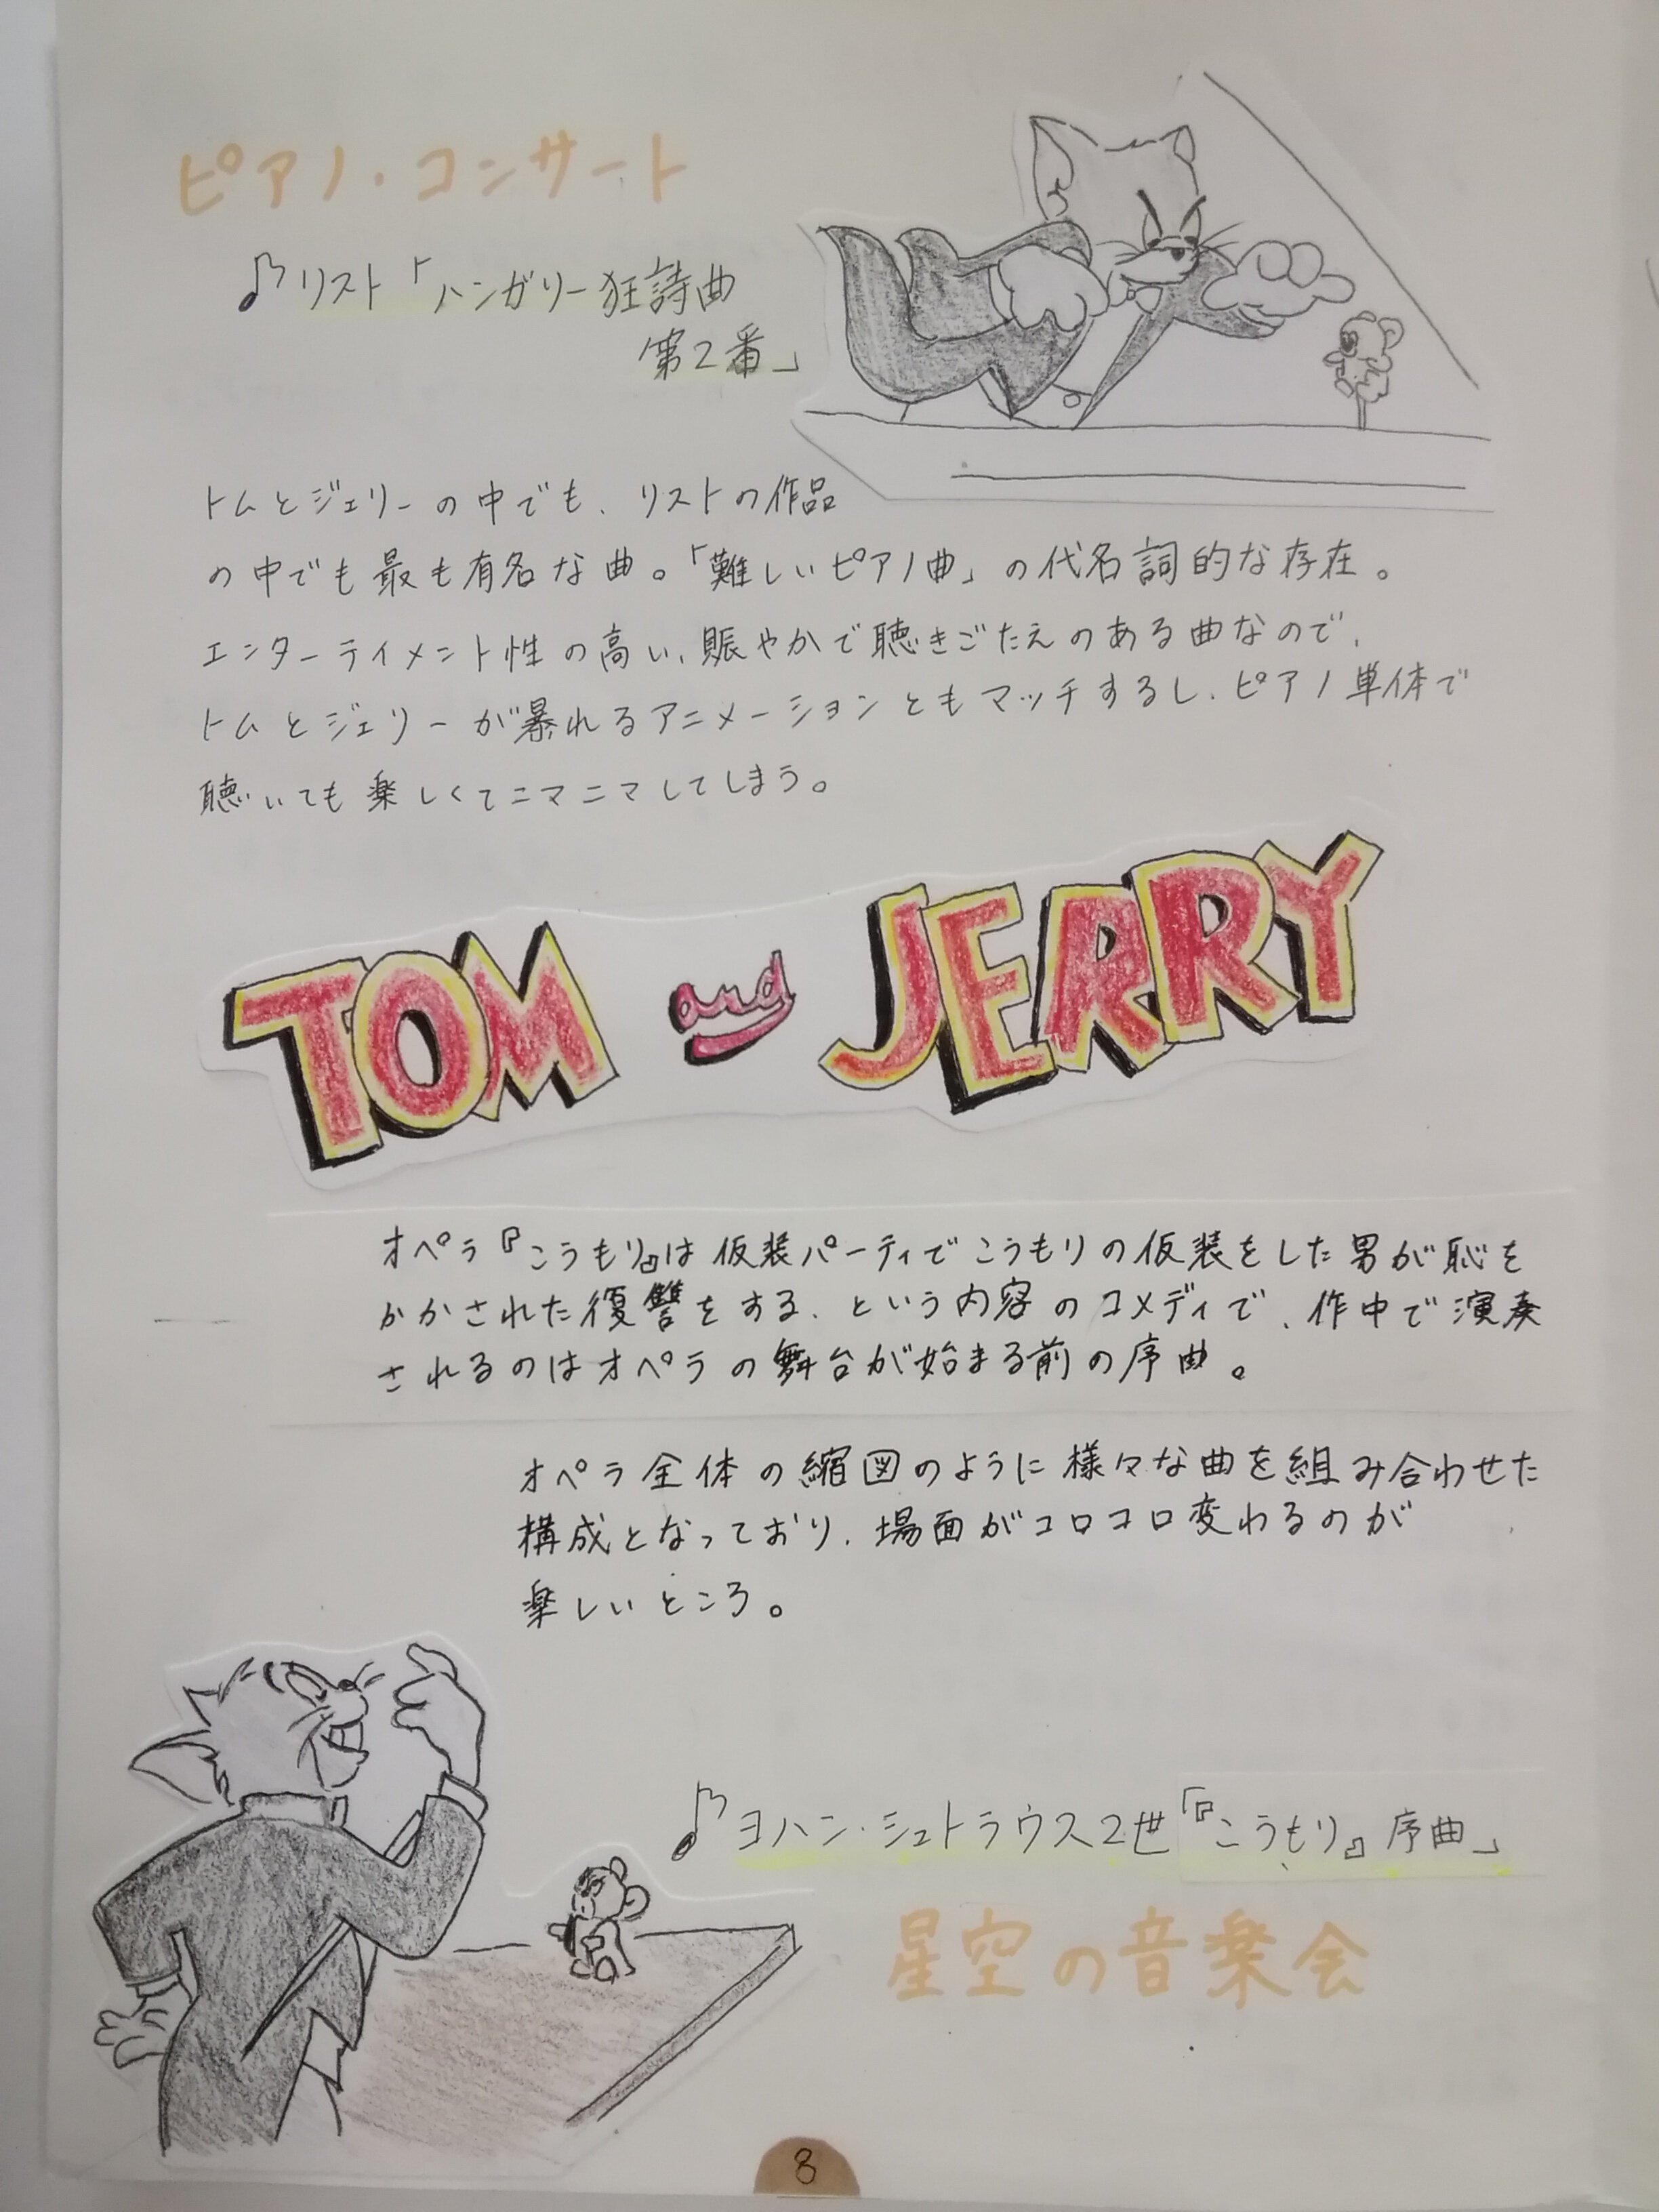 ピアノ・コンサート
♪リスト「ハンガリー狂詩曲
第2番」
トムとジェリーの中でも、リストの作品
の中でも最も有名な曲。「難しいピアノ曲」の代名詞的な存在。
エンターテイメント性の高い、賑やかで聴きごたえのある曲なので、
トムとジェリーが暴れるアニメーションともマッチするし、ピアノ単体で
聴いても楽しくてニマニマしてしまう。
TOM and JERRY
オペラ『こうもり』は仮装パーティでこうもりの仮装をした男が恥を
かかされた復讐をする、という内容のコメディで、作中で演奏
されるのはオペラの舞台が始まる前の序曲。
オペラ全体の縮図のように様々な曲を組み合わせた
構成となっており、場面がコロコロ変わるのが
楽しいところ。
♪ヨハン・シュトラウス2世「『こうもり』序曲」
星空の音楽会
8